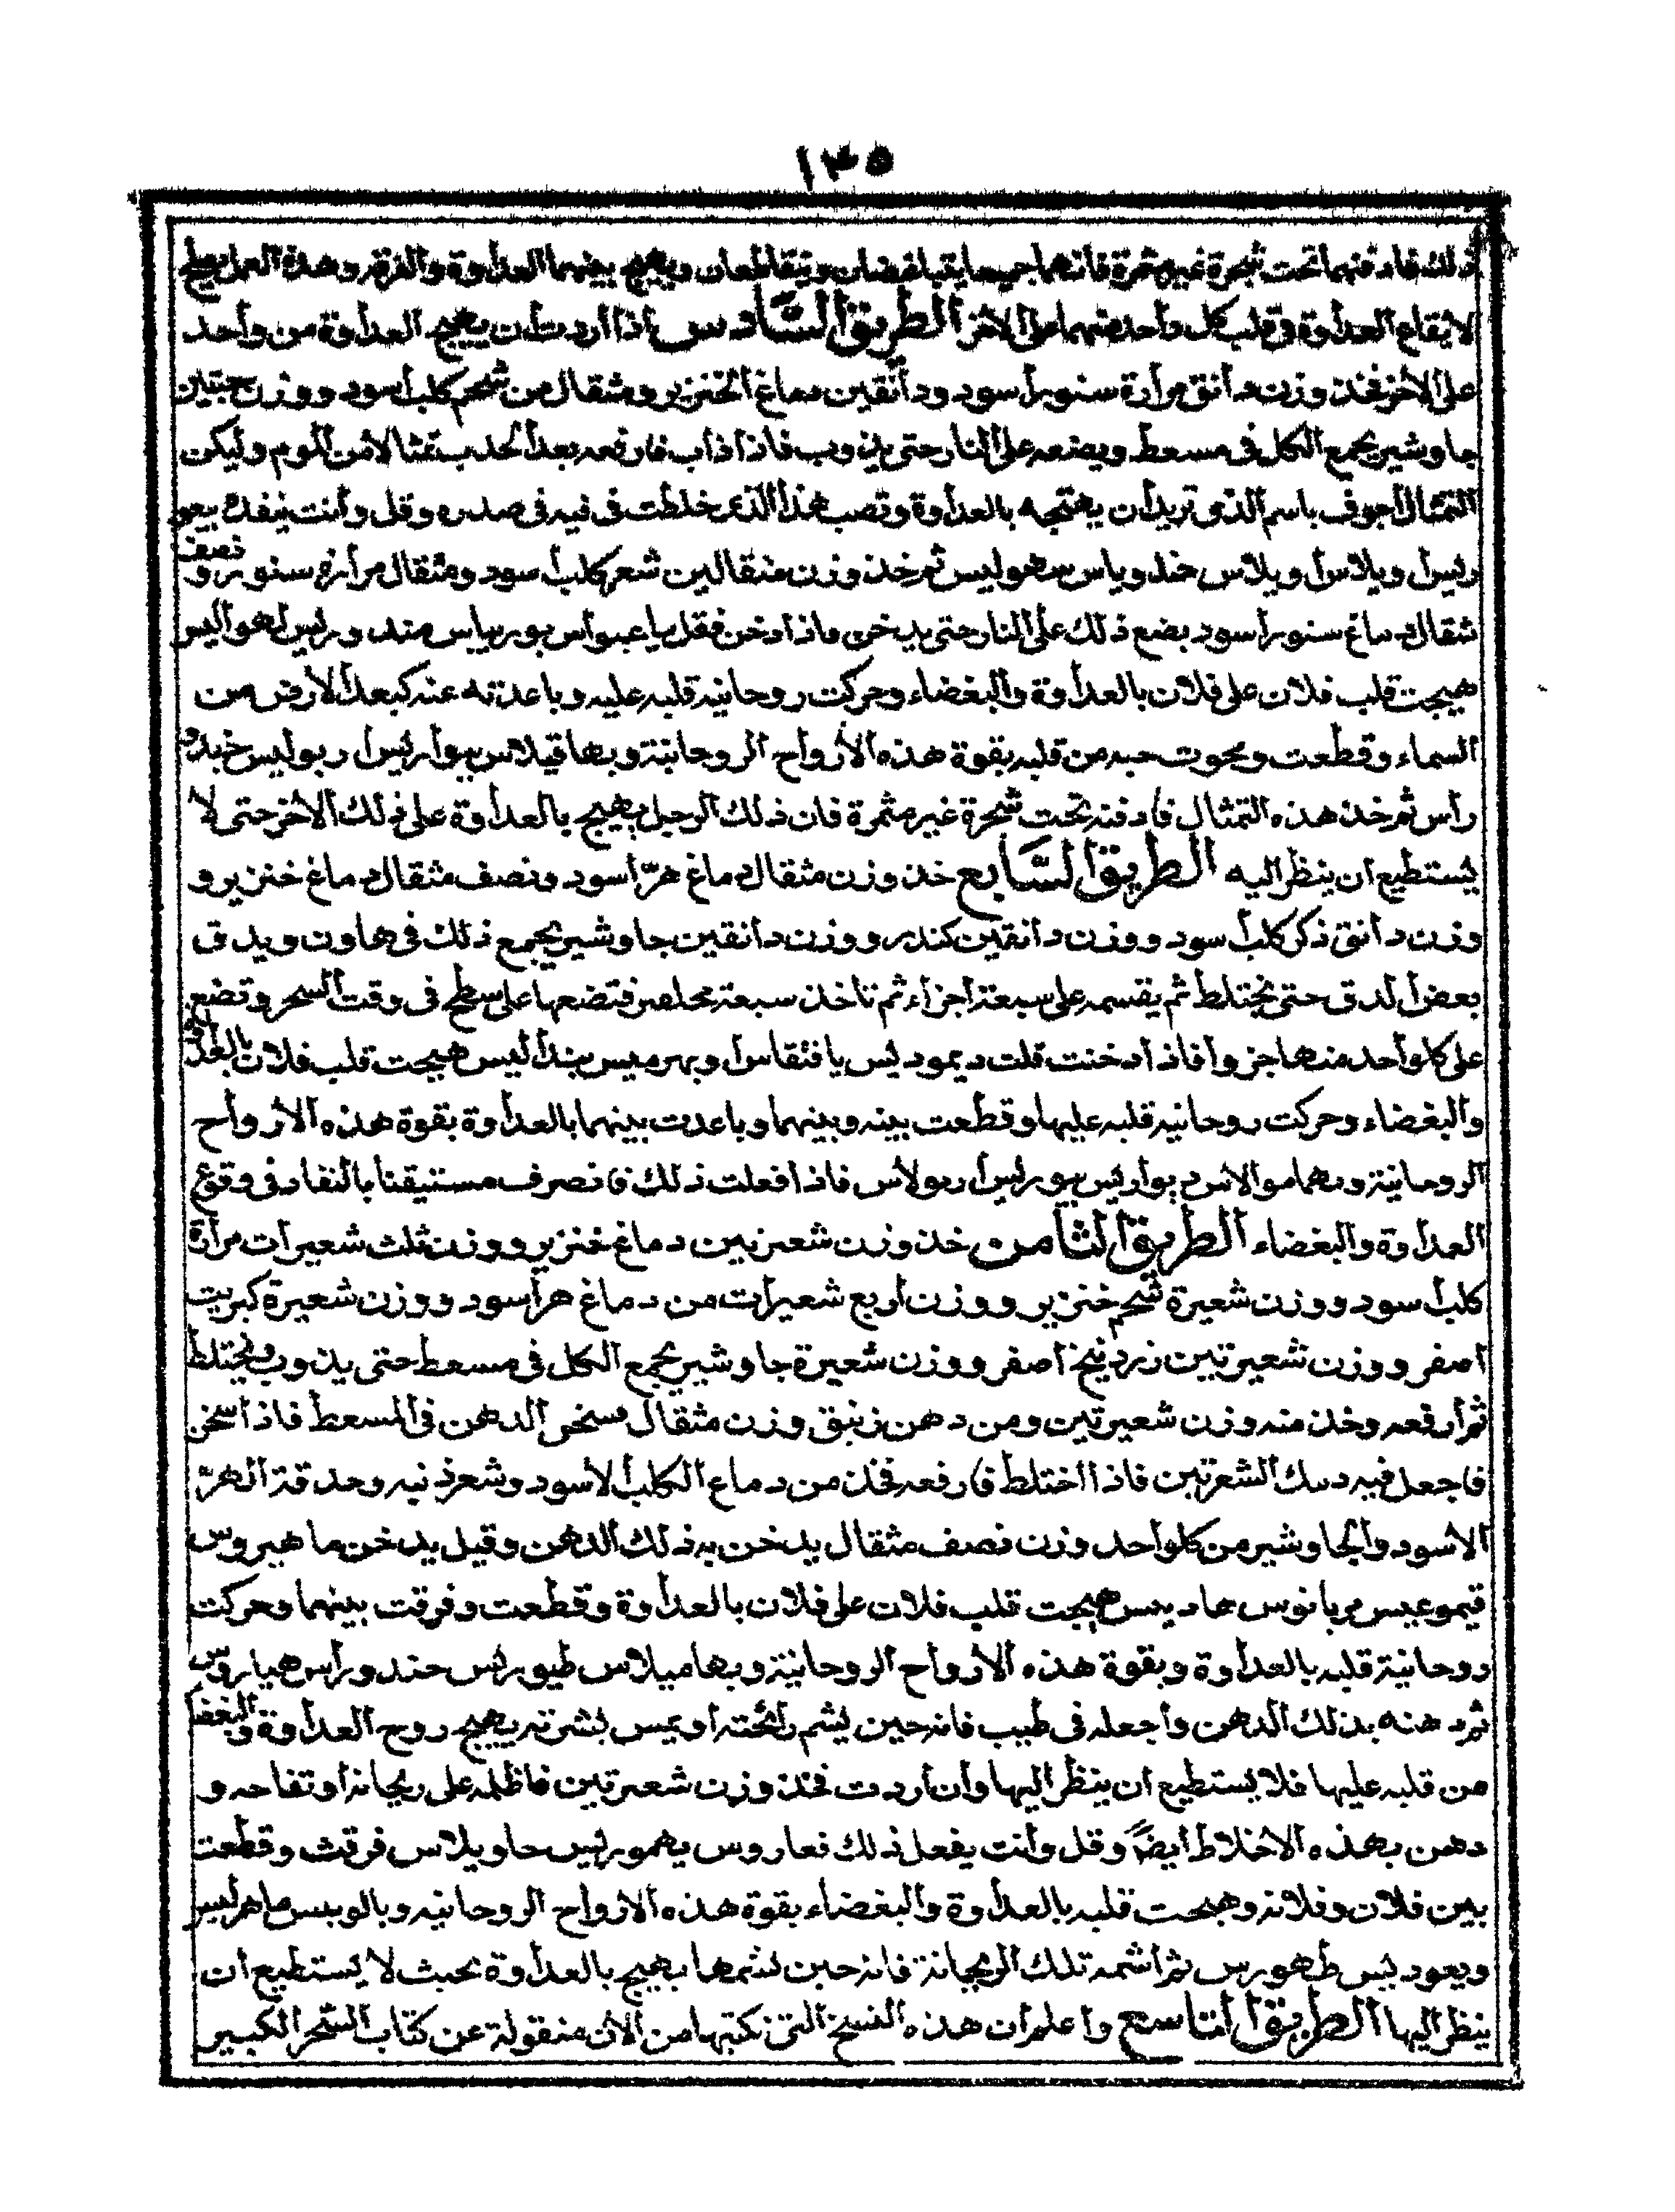 ١٣٥
ذلك فادفنهما تحت شجرة غير مثمرة فانهما جميعا يتباغضان ويتقاطعان ويهيج بينهما العداوة والفرقة وهذه العمل يصلح
لايقاع العداوة فى قلب كل واحد منهما على الاخر الطريق السادس اذا اردت أن يهيج العداوة من واحد
على الاخر فخذ وزن دانق مرارة سنور أسود ودانقين دماغ الخنزير ومثقال من شحم كلب أسود ووزن حبتين
جاوشير يجمع الكل فى مسعط ويضعه على النار حتى يذوب فاذا ذاب فارفعه بعد الحذب تمثالا من الموم وليكن
التمثال أجوف باسم الذى تريد أن يهيجه بالعداوة وتصب هذا الذى خلطت فى فيه فى صدره وقل وأنت ينفذه
ريس وپلاس خند وياس سهوليس ثم خذ وزن مثقالين شعر كلب أسود ومثقال مرارة سنور ونصف
مثقال دماغ سنور أسود يضع ذلك على النار حتى يدخن فاذا دخن فقل ياعبواس
هيجت قلب فلان على فلان بالعداوة والبغضاء وحركت روحانية قلبه عليه وباعدته عنه كبعد الارض من
السماء وقطعت ومحوت حبه من قلبه بقوة هذه الأرواح الروحانية وبها
راس ثم خذ هذه التمثال فادفنه تحت شجرة غير مثمرة فان ذلك الرجل يهيج بالعداوة على ذلك الاخر حتى لا
يستطيع ان ينظر اليه الطريق السابع خذ وزن مثقال دماغ هرّ أسود ونصف مثقال دماغ خنزير و
وزن دانق ذكر كلب أسود ووزن دانقين كندر ووزن دانقين جاوشير يجمع ذلك فى هاون ويدق
بعض الدق حتى يختلط ثم يقسمه على سبعة اجزاء ثم تاخذ سبعة فتضعها على سطح فى وقت السحر وتضع
على كل واحد منها جزوا فاذا دخنت قلت هيجت قلب فلان بالعداوة
والبغضاء وحركت روحانية قلبه عليها وقطعت بينه وبينهما وباعدت بينهما بالعداوة بقوة هذه الأرواح
الروحانية فاذا فعلت ذلك فانصرف مستيقنا بالنفاد فى وقوع
العداوة والبغضاء الطريق الثامن خذ وزن شعيرتين دماغ خنزير ووزن ثلث شعيرات مرارة
كلب أسود ووزن شعيرة شحم خنزير ووزن أربع شعيرات من دماغ هر أسود ووزن شعيرة كبريت
اصفر ووزن شعيرتين زرنيخ اصفر ووزن شعيرة جاوشير يجمع الكل فى مسعط حتى يذوب ويختلط
ثم أرفعه وخذ منه وزن شعيرتين ومن دهن زنبق وزن مثقال فسخن الدهن فى المسعط فاذا سخن
فاجعل فيه الشعرتين فاذا اختلط فارفعه فخذ من دماغ الكلب الأسود وشعر ذنبه وحدقة الهرّ
الاسود والجاوشير من كل واحد وزن نصف مثقال يدخن به ذلك الدهن وقيل يدخن ما هيروس
هيجت قلب فلان على فلان بالعداوة وقطعت وفرقت بينهما وحركت
روحانية قلبه بالعداوة وبقوة هذه الأرواح الروحانية وبها ميلاس
ثم دهنه بذلك الدهن وأجعله فى طيب فانه حين يشم رائحته أو يمس بشرته يهيج روح العداوة والبغضا
من قلبه عليها فلا يستطيع ان ينظر اليها وأن أردت فخذ وزن شعيرتين فاظله على ريحانة أو تفاحه و
دهن بهذه الأخلاط أيضا وقل وأنت يفعل ذلك فرقت وقطعت
بين فلان وفلانة وهيجت قلبه بالعداوة والبغضاء بقوة هذه الأرواح الروحانيه
ثم أشمه تلك الريحانة فانه حين يشمها يهيج بالعداوة بحيث لا يستطيع ان
ينظر اليها الطريق التاسع وأعلم أن هذه النسخ التى نكتبها من الأن منقولة عن كتاب السحر الكبير